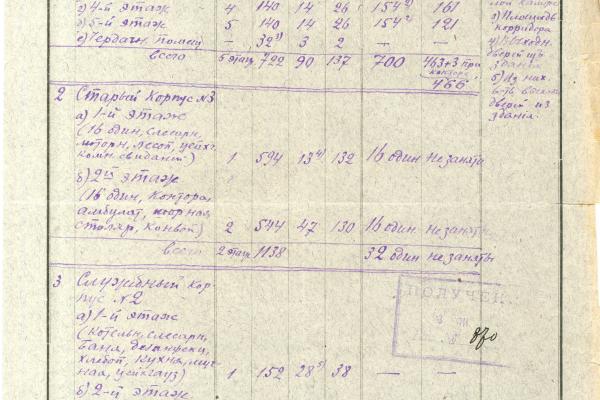 г) 4-й этаж 4 140 14 26 154²⁾ 161
д) 5-й этаж 5 140 14 26 154²⁾ 121
е) Чердачн. помещ — 32³⁾ 3 2 — —
Всего 5 этаж. 722 90 137 700 463+3 при конторе
466
3) Площадь корридора
дверей из здания
5) Из них
дверей из здания.
2 Старый Корпус №3
а) 1-й этаж
(16 один, слесарн,
моторн, лесоп, цейхг.
комн. свиданий) 1 594 13⁴⁾ 132 16 один не занята
б) 2й этаж
(16 один, Контора,
амбулат,
столяр, Конвой) 2 544 47 130 16 один не занята
Всего 2 этаж 1138 32 один не заняты
3 Служебный Кор-
пус №2
а) 1-й этаж
(Котельн, слесарн,
баня, дезинфекц,
хлебоп, кухня, муч-
ная, цейхгауз) 1 152 28⁵⁾ 38 — —
б) 2-й этаж
ПОЛУЧЕН